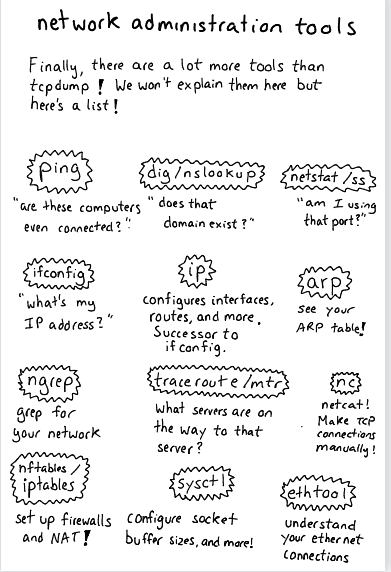 network administration tools
Finally, there are a lot more tools than
tcpdump! We won't explain them here but
here's a list!
ping
"are these computers
even connected?"
dig/nslookup
"does that
domain exist?"
netstat/ss
"am I using
that port?"
ifconfig
"what's my
IP address?"
ip
configures interfaces,
routes, and more.
Successor to
ifconfig.
arp
see your
ARP table!
ngrep
grep for
your network
traceroute/mtr
what servers are on
the way to that
server?
nc
netcat!
Make TCP
connections
manually!
nftables/
iptables
set up firewalls
and NAT!
sysctl
configure socket
buffer sizes, and more!
ethtool
understand
your ethernet
connections